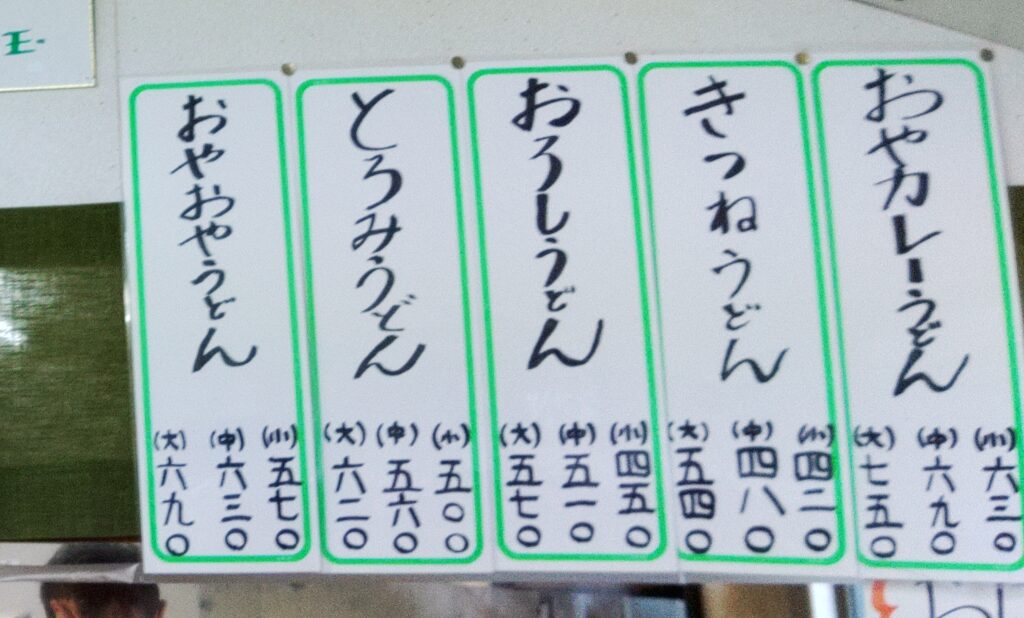 おやカレーうどん
(小)六三〇
(中)六九〇
(大)七五〇
きつねうどん
(小)四二〇
(中)四八〇
(大)五四〇
おろしうどん
(小)四五〇
(中)五一〇
(大)五七〇
とろみうどん
(小)五〇〇
(中)五六〇
(大)六二〇
おやおやうどん
(小)五七〇
(中)六三〇
(大)六九〇